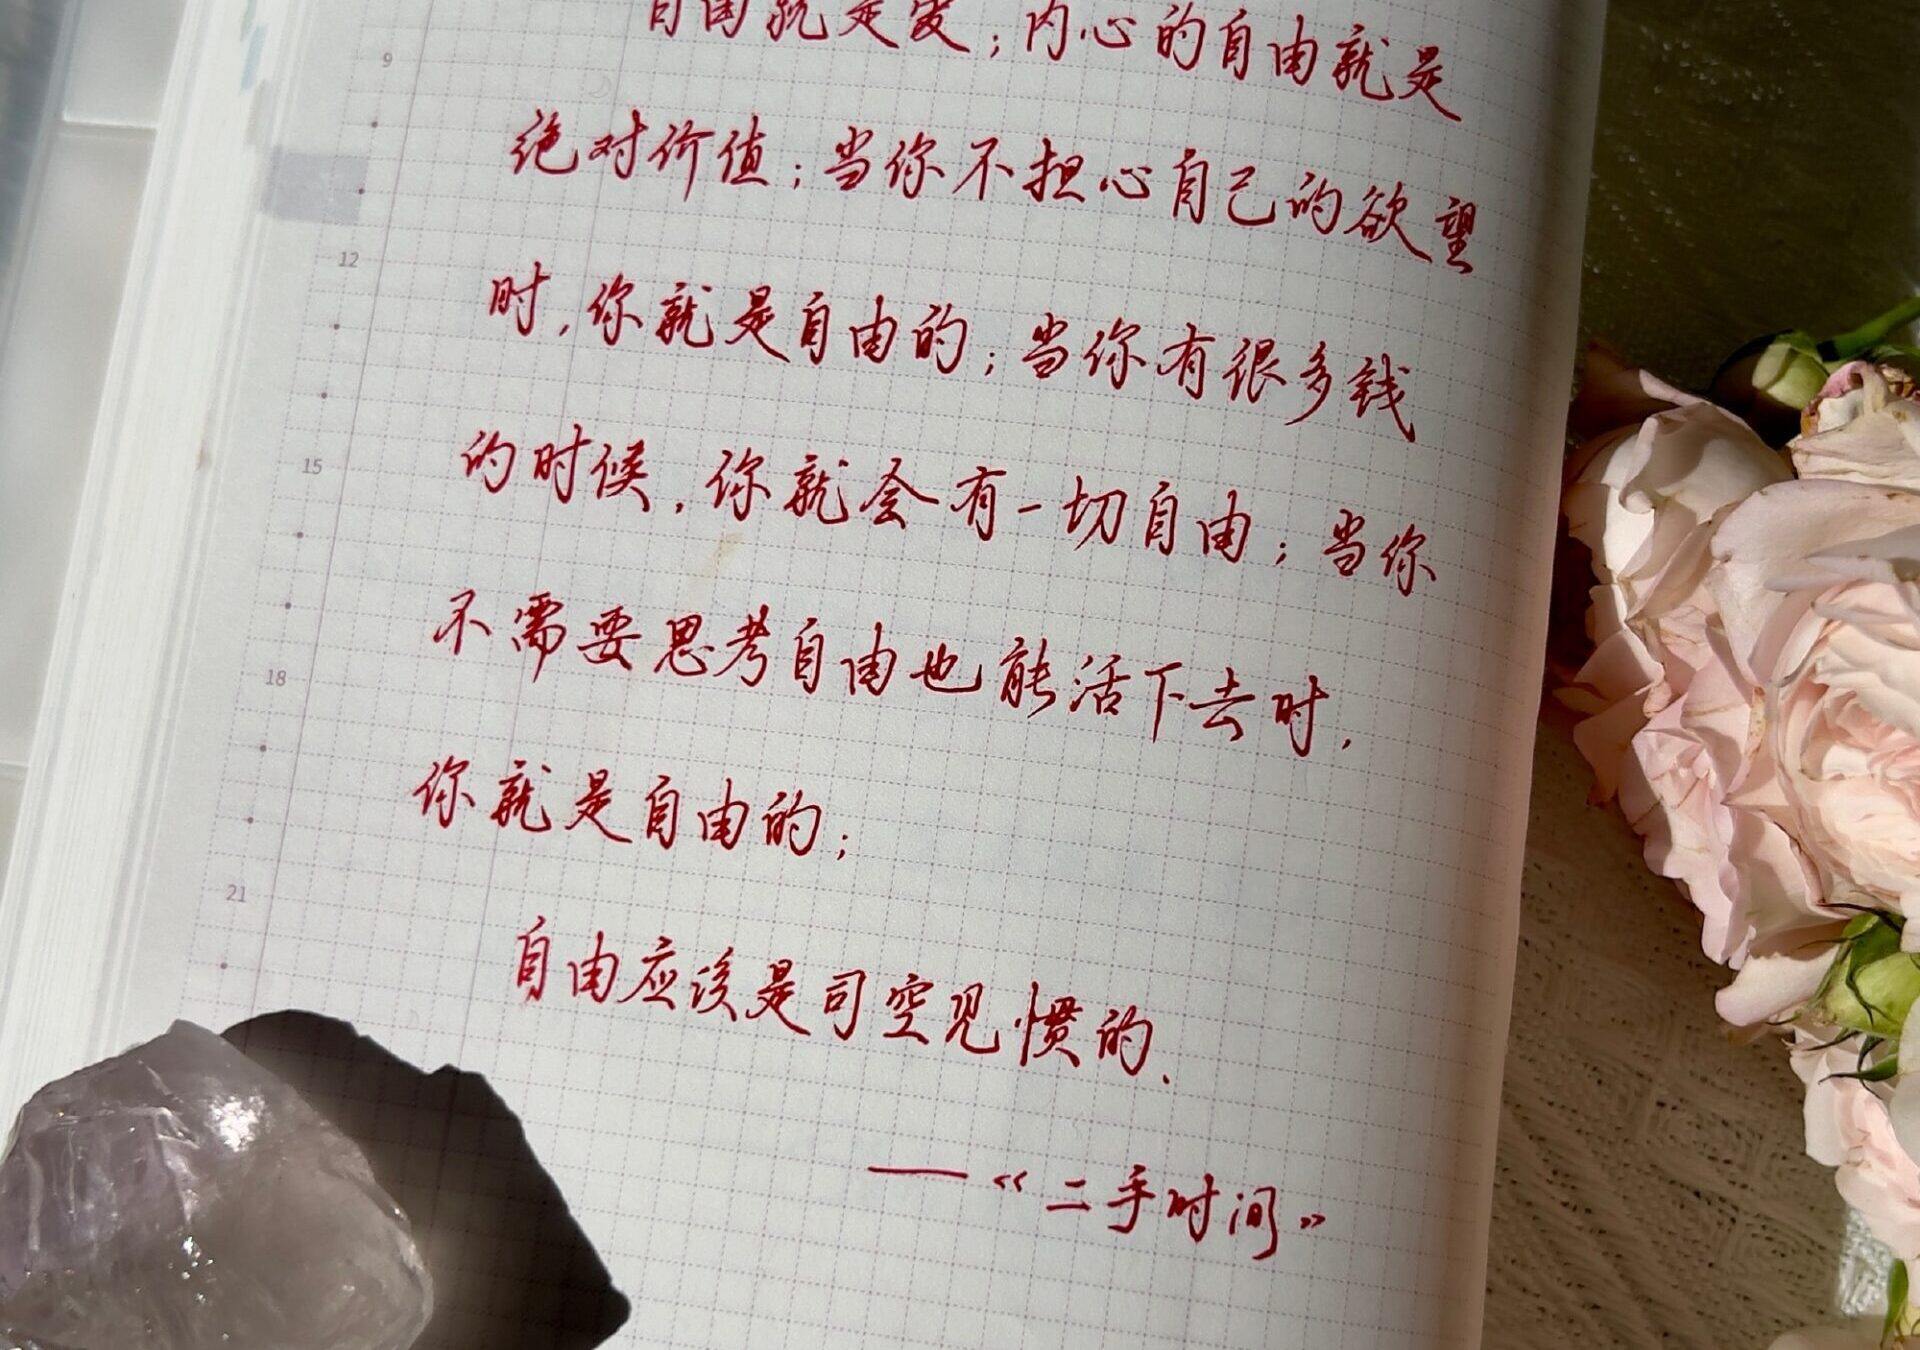 自由就是爱；内心的自由就是
绝对价值；当你不担心自己的欲望
时，你就是自由的；当你有很多钱
的时候，你就会有一切自由；当你
不需要思考自由也能活下去时，
你就是自由的；
自由应该是司空见惯的．
——《二手时间》
9
12
15
18
21